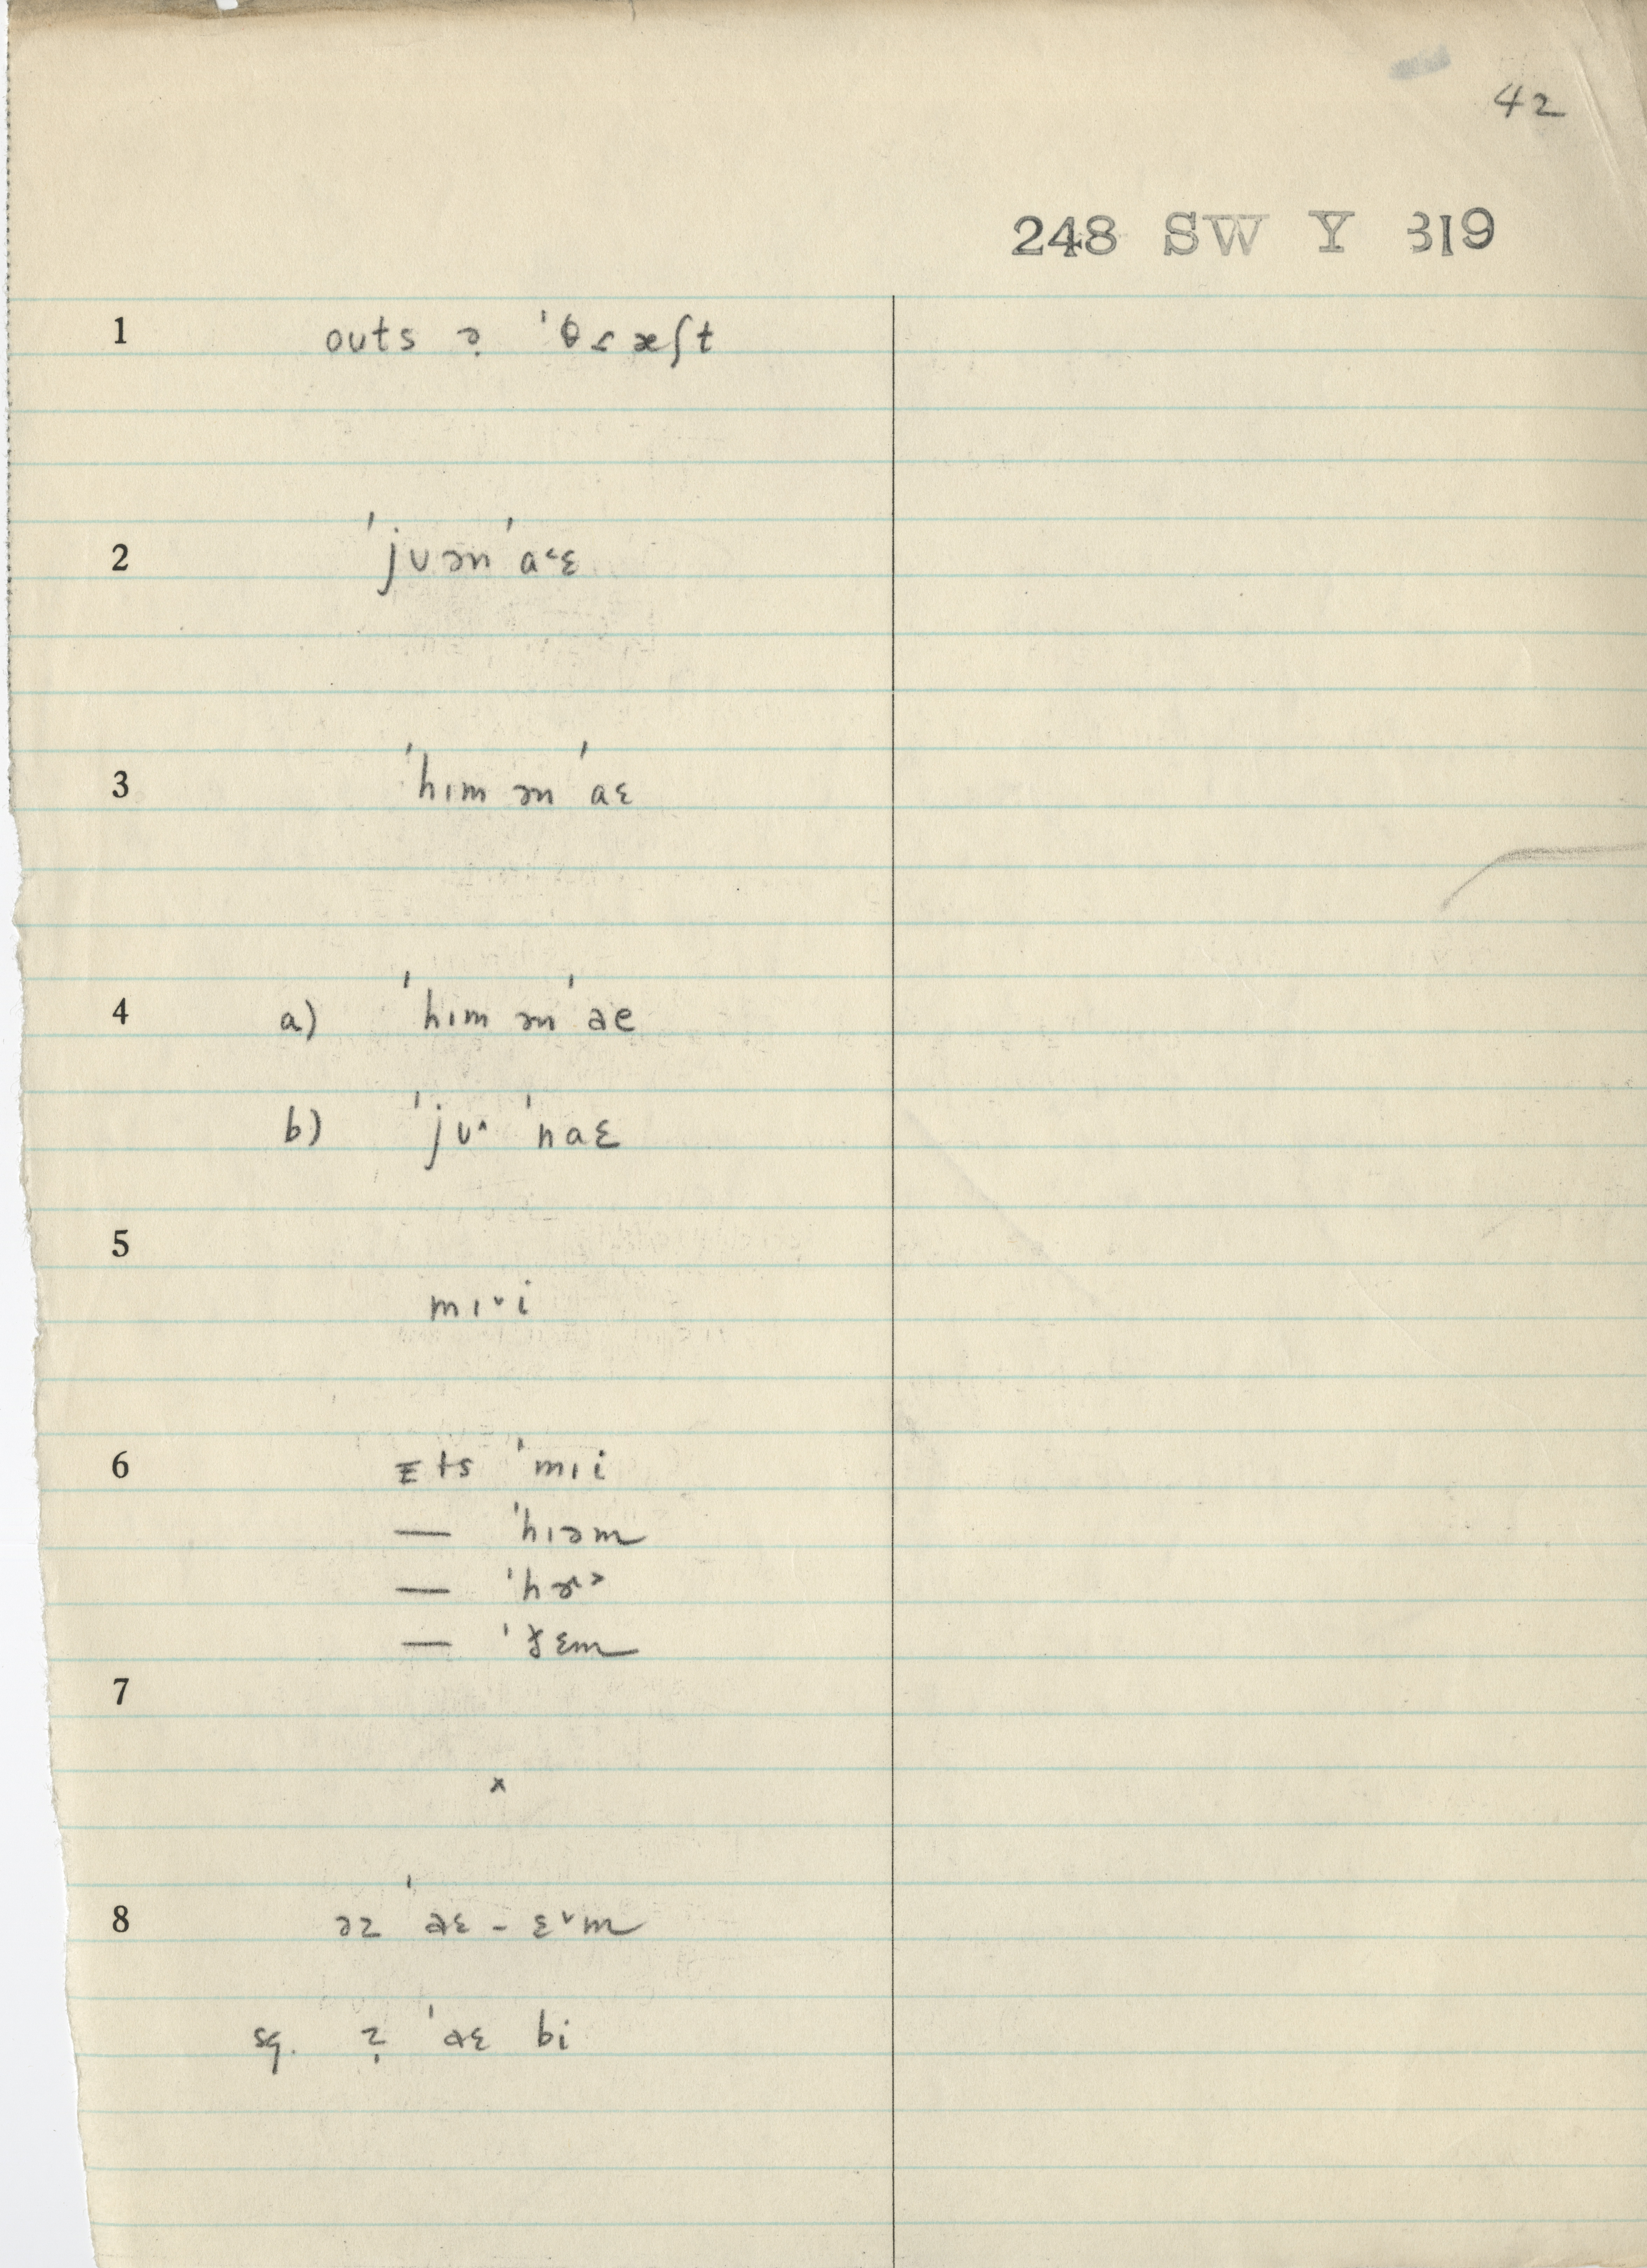 42
248 SW Y 319
1 oʊts ə̣ ˈθɾæʃt
2 ˈjʊən ˈa˂ɛ
3 ˈhɪm ən ˈaɛ
4 a) ˈhɪm ən ˈae
b) ˈjʊ˄ ˈnaɛ
5
mɪ˅i
6 ɪts ˈmɪi
— ˈhɪəm
— ˈhɚ˃
— ˈðɛm
7
x
8 əz ˈaɛ - ɛ˅m
sq. ˈaɛ bi